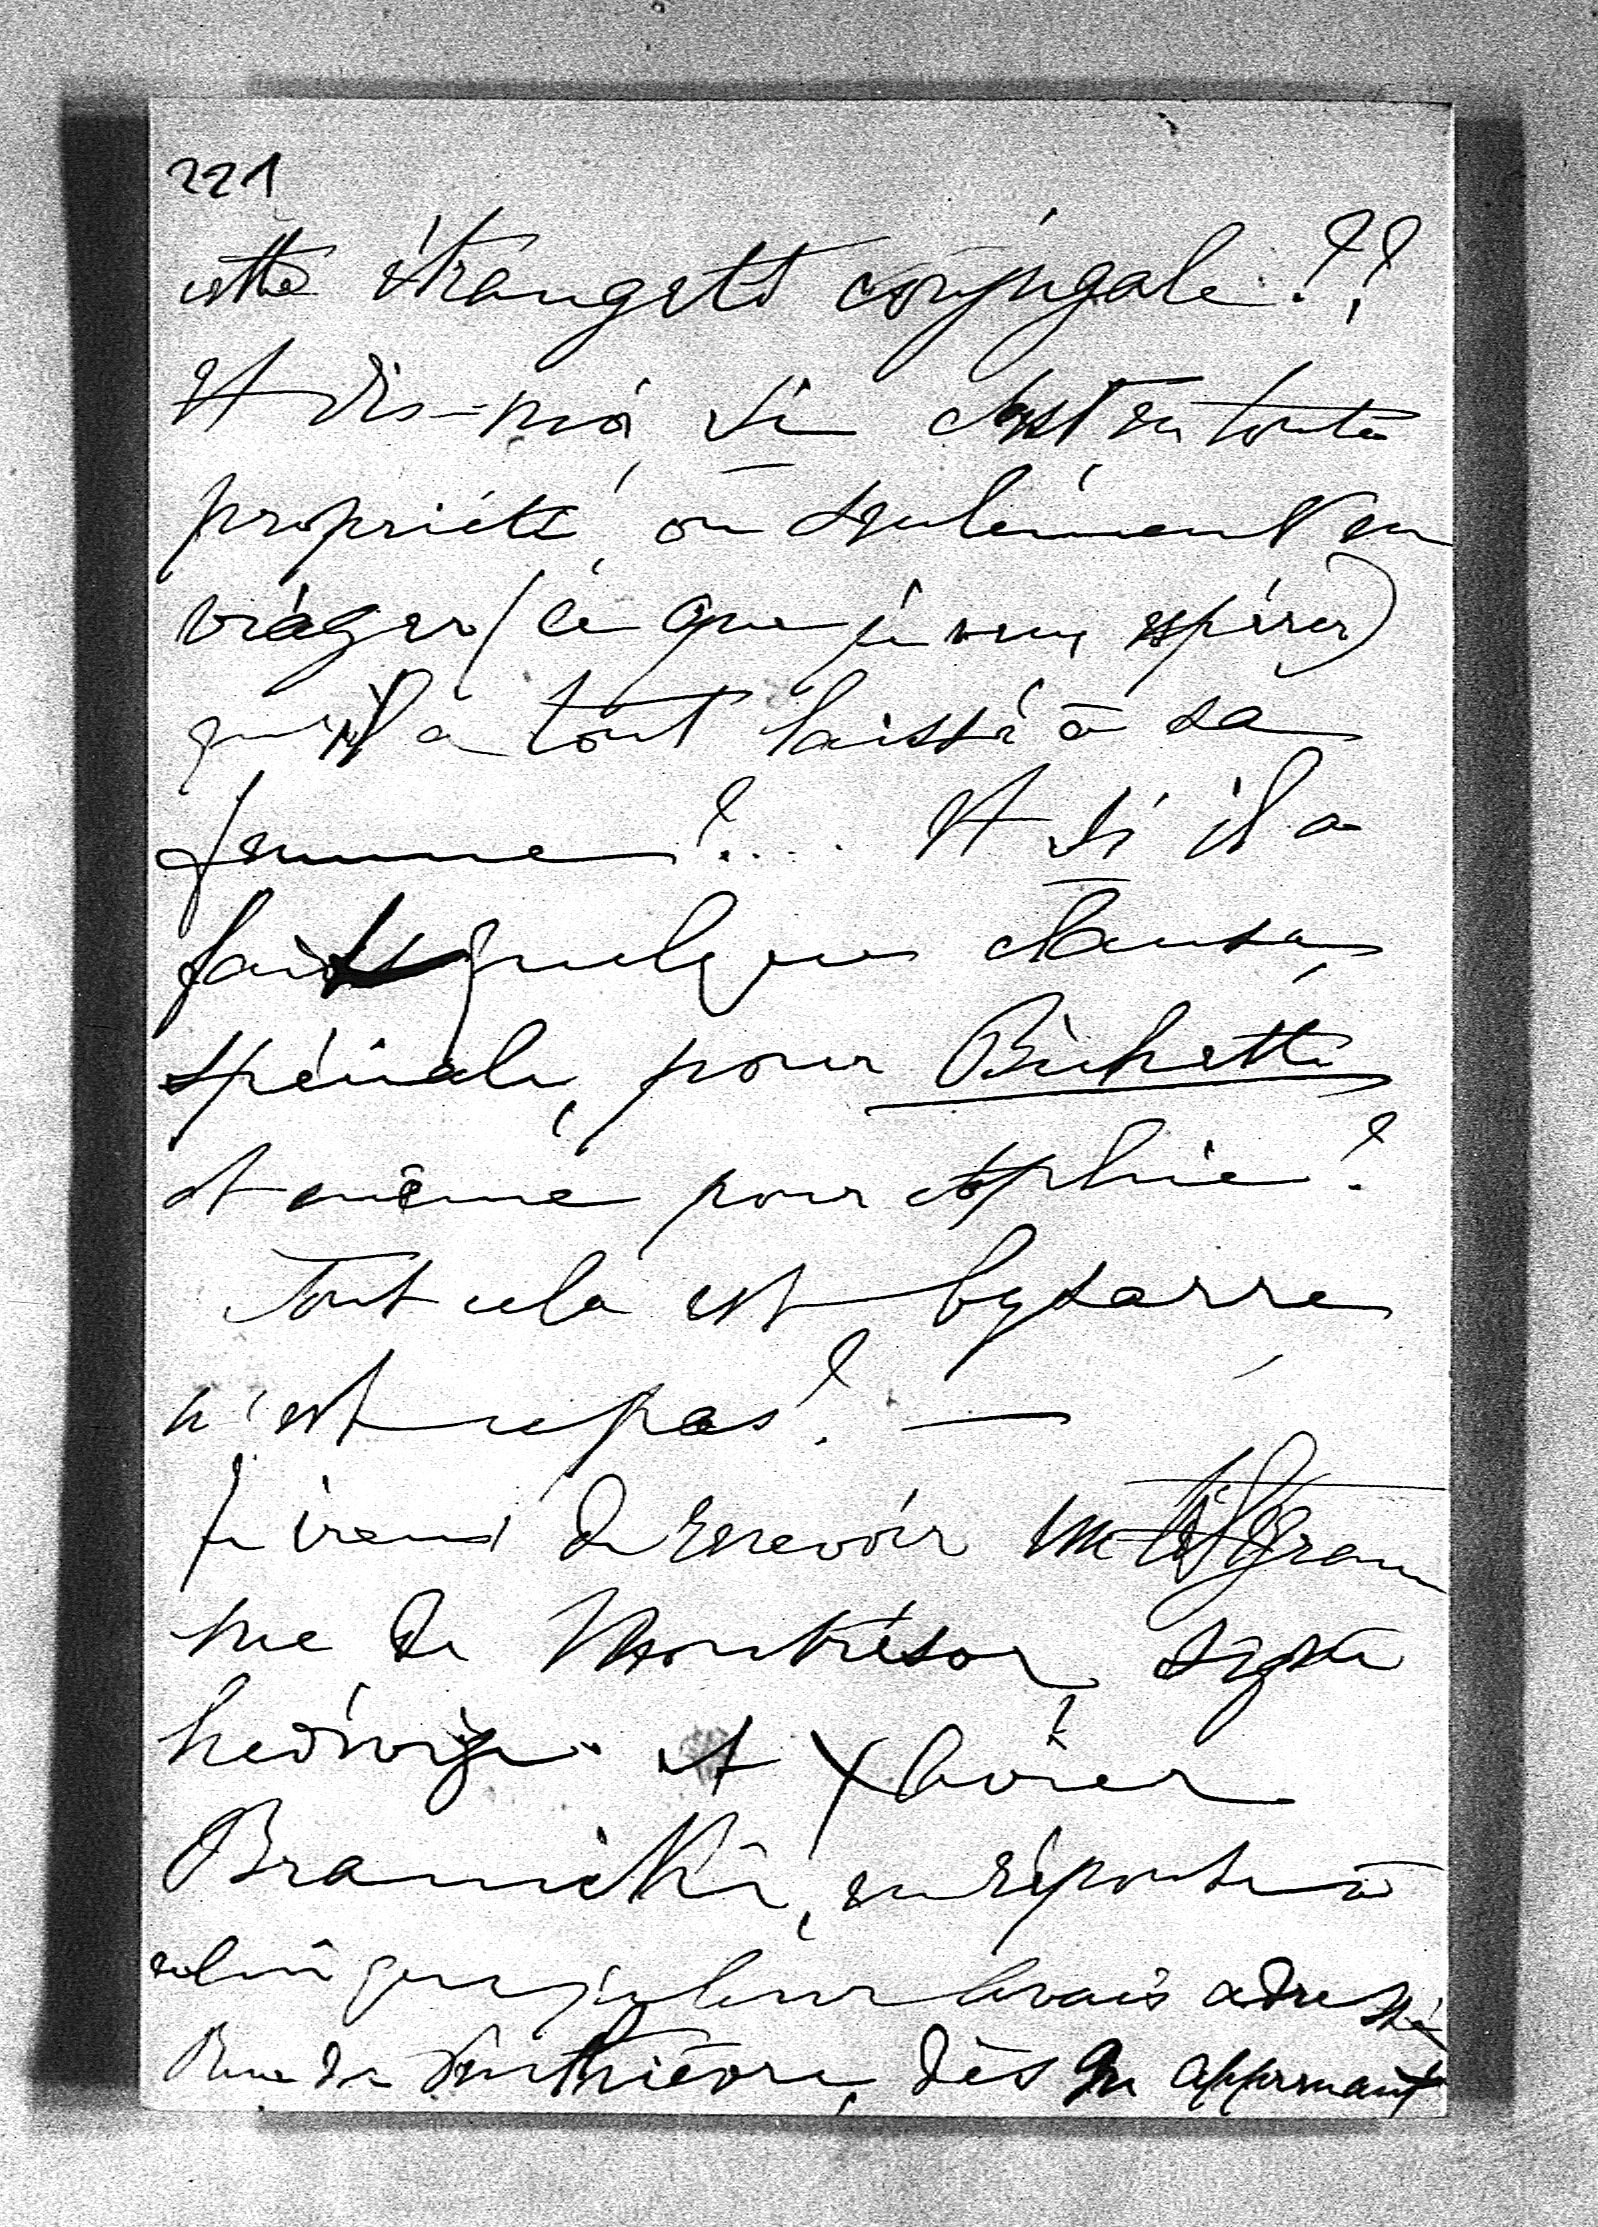 221
cette étrangeté conjugale??
Et dis-moi, si c'est en toute
propriété, ou seulement en
viager (ce que je veux espérer)
qu'il a tout laissé à sa
femme?.... Et si il a
fait quelque clause,
spéciale, pour Bichette
et même pour Sophie?
Tout cela est bysarre,
n'est-ce pas? —
Je viens de recevoir un télégram
me de Montrésor, signé
hedwige et Xavier
Branicki, en réponse à
celui que je leur avais adressé
Rue de Penthièvre, dès qu'apprenant